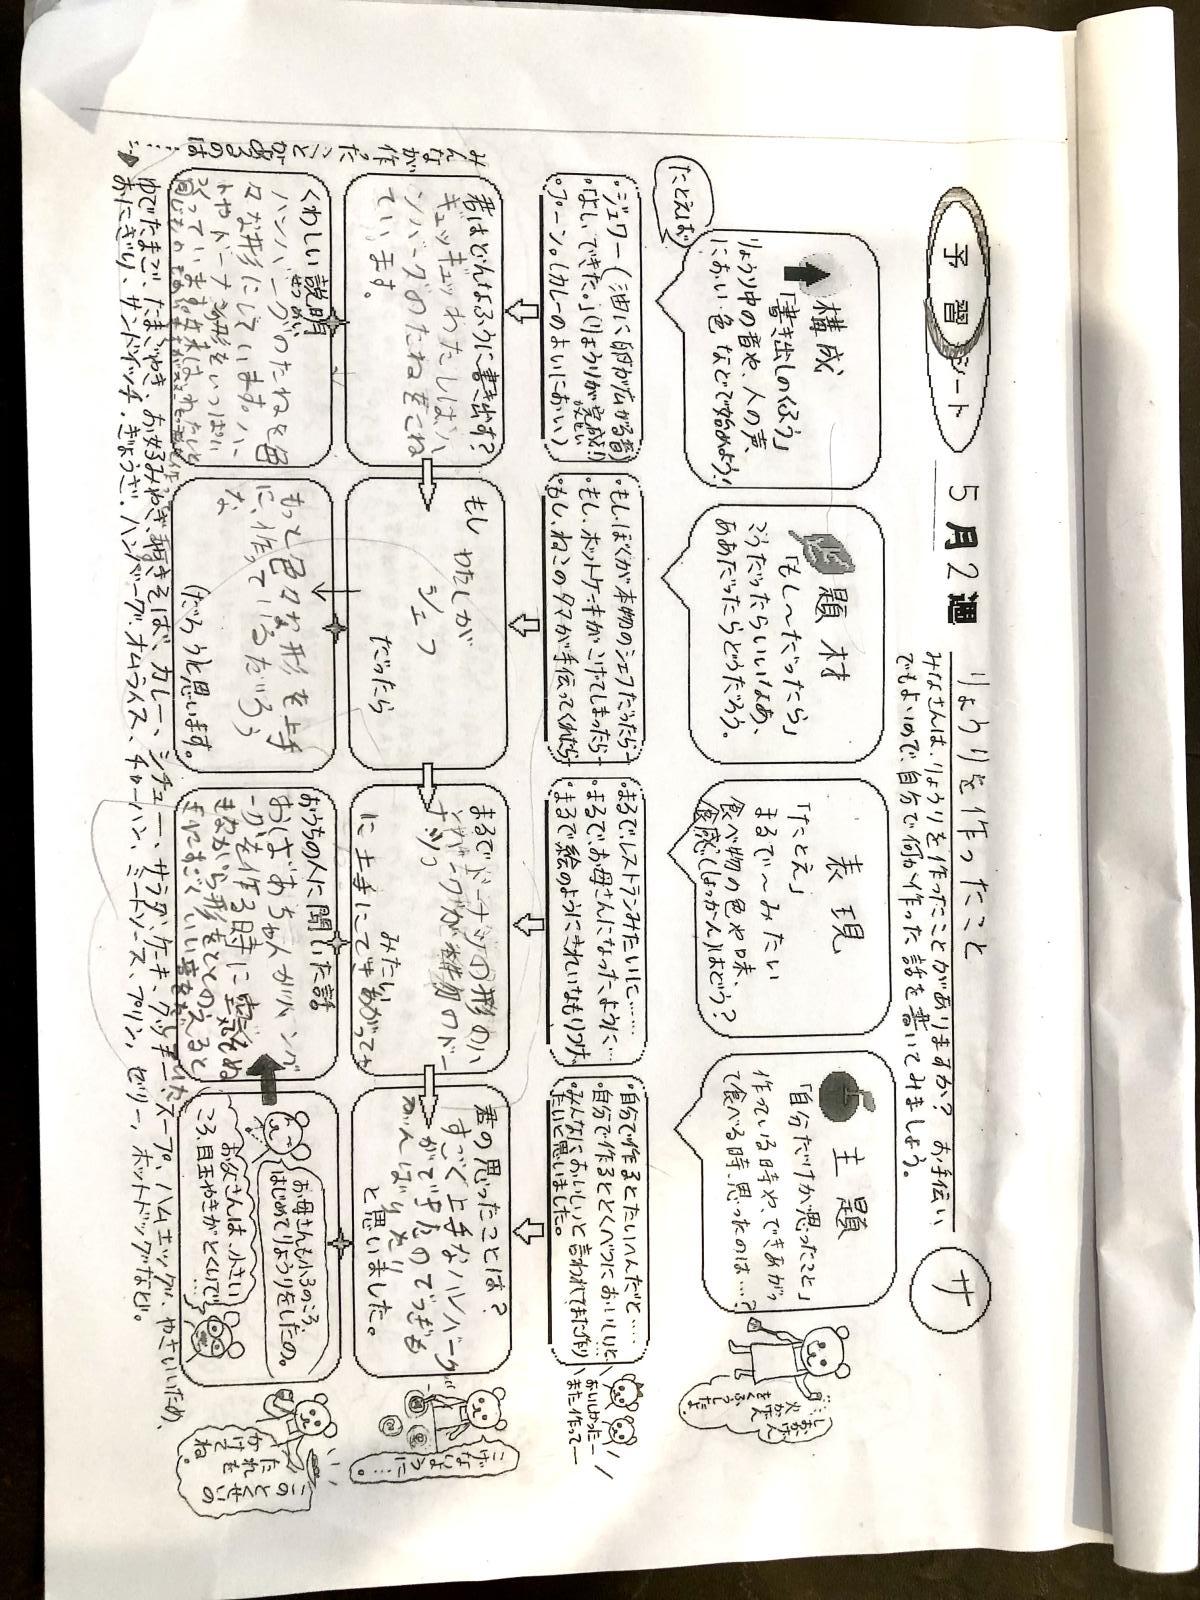 予習シート
5月2週
りょうりを作ったこと
みなさんは、りょうりを作ったことがありますか？ お手伝い
でもよいので、自分で何か作った話を書いてみましょう。
サ
構成
「書き出しのくふう」
りょうり中の音や、人の声、
におい・色などで始めよう！
題材
「もし〜だったら」
こうだったらいいなあ、
ああだったらどうだろう。
表現
「たとえ」
まるで〜みたい
食べ物の色や味、
食感（しょっかん）はどう？
主題
「自分だけが思ったこと」
作っている時や、できあがっ
て食べる時、思ったのは…？
たとえば
・ジュワー（油に卵が広がる音）
・「よし、できた。」（りょうりが完成！）
・プーン。（カレーのよいにおい）
・もし、ぼくが本物のシェフだったら…
・もし、ホットケーキがこげてしまったら…
・もし、ねこのタマが手伝ってくれたら…
・まるで、レストランみたいに……
・まるで、お母さんになったように…
・まるで絵のようにきれいなもりつけ
・自分で作るとたいへんだと……
・自分で作るととくべつにおいしいと
・みんなにおいしいと言われてまた作り
たいと思いました。
おいしかったー
また作ってー
君はどんなふうに書き出す？
ギュッギュッわたしはハ
ンバーグのたねをこね
ています。
もし わたしが
シェフ
だったら
まるで ドーナツの形のハ
ンバーグが本物のドー
ナツ
みたい
に上手にできあがって
君の思ったことは？
すごく上手なハンバーグ
ができたのでつぎも
がんばりたい
と思いました。
こげないように…。
くわしい説明
せつめい
ハンバーグのたねを色
々な形にしています。ハー
トやドーナツ形をいっぱい
つくっています。
もっと色々な形を上手
に、作っているだろう
な
（だろう）と思います。
おうちの人に聞いた話
おばあちゃんがハンバーグ
を作る時に空気をぬ
きながら形をととのえると
お母さんも小3のころ、
はじめてりょうりをしたの。
お父さんは、小さい
ころ、目玉やきがとくいで…
このとくせいの
たれを
かけてね。
みんなが作ったことがあるのは……
ゆでたまご、たまごやき、お好みやき、焼きそば、カレー、シチュー、サラダ、ケーキ、クッキー、スープ、ハムエッグ、やさいいため、
おにぎり、サンドイッチ、ぎょうざ、ハンバーグ、オムライス、チャーハン、ミートソース、プリン、ゼリー、ホットドッグなど。